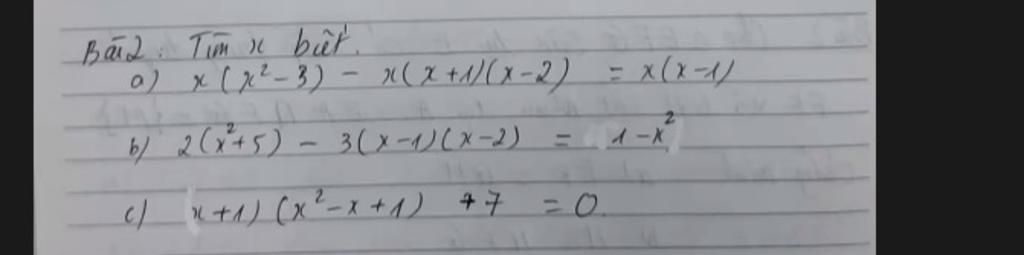 Bài 2: Tìm x biết.
a) x(x²-3) - x(x+1)(x-2) = x(x-1)
b) 2(x²+5) - 3(x-1)(x-2) = 1-x²
c) (x+1)(x²-x+1) +7 = 0.